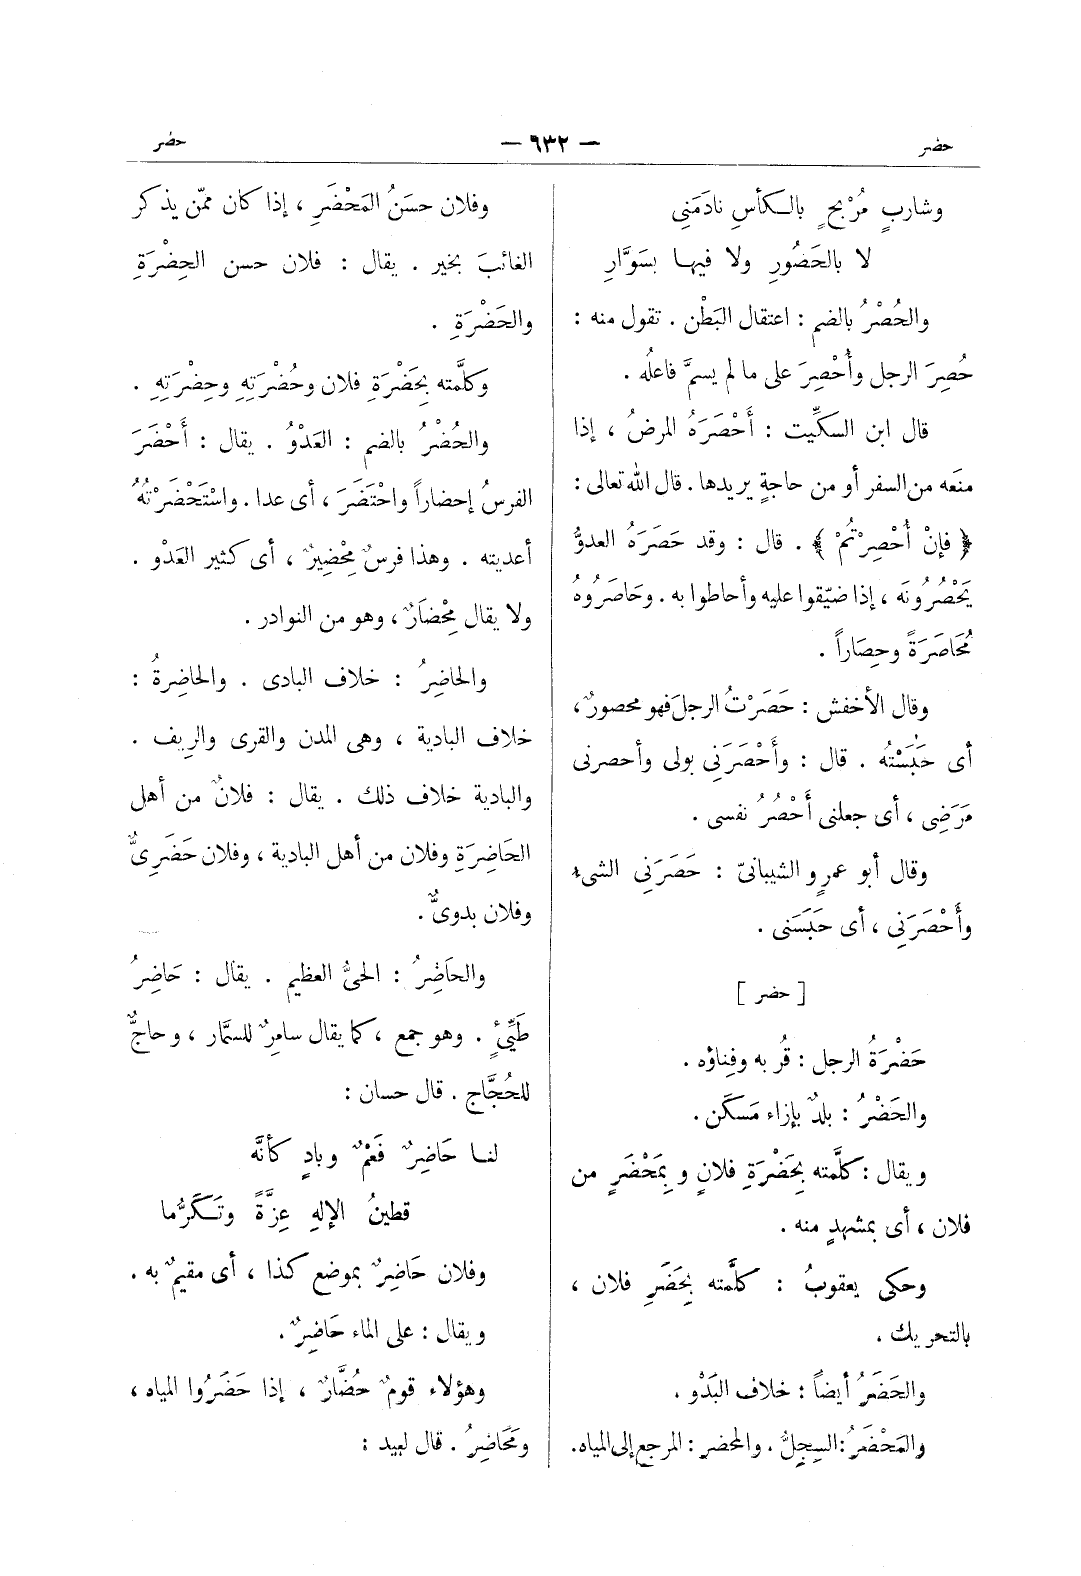 حضر
— ٦٣٢ —
حضر
وشاربٍ مُرْبحٍ بالكأسِ نادَمَنِى
لا بالحَصُورِ ولا فيها بسَوَّارِ
والحُصْرُ بالضم : اعتقال البَطْن . تقول منه :
حُصِرَ الرجل وأُحْصِرَ على ما لم يسمَّ فاعلُه .
قال ابن السكِّيت : أَحْصَرَهُ المرضُ ، إذا
منَعه من السفر أو من حاجةٍ يريدها . قال الله تعالى :
﴿ فإنْ أُحْصِرْتُمْ ﴾ . قال : وقد حَصَرَهُ العدوُّ
يَحْصُرُونَه ، إذا ضيّقوا عليه وأحاطوا به . وحَاصَرُوهُ
مُحَاصَرَةً وحِصَاراً .
وقال الأخفش : حَصَرْتُ الرجلَ فهو محصورٌ ،
أى حَبَسْتُه . قال : وأَحْصَرَنِى بولى وأحصرنى
مَرَضِى ، أى جعلنى أَحْصُرُ نفسى .
وقال أبو عمرٍو الشيبانىّ : حَصَرَنِى الشىء
وأَحْصَرَنِى ، أى حَبَسَنى .
[ حضر ]
حَضْرَةُ الرجل : قُربه وفِناؤه .
والحَضْرُ : بلدٌ بإزاء مَسكَن .
ويقال : كلَّمته بِحَضْرَةِ فلانٍ وبِمَحْضَرٍ من
فلان ، أى بمشهدٍ منه .
وحكى يعقوبُ : كلَّمته بِحَضَرِ فلان ،
بالتحريك .
والحَضَرُ أيضاً : خلاف البَدْو .
والمَحْضَرُ : السِجِلُّ . والمحضر : المرجع إلى المياه .
وفلان حسَنُ المَحْضَرِ ، إذا كان ممّن يذكر
الغائبَ بخير . يقال : فلان حسن الحِضْرَةِ
والحَضْرَةِ .
وكلَّمته بِحَضْرَةِ فلان وحُضْرَتِهِ وحِضْرَتِهِ .
والحُضْرُ بالضم : العَدْوُ . يقال : أَحْضَرَ
الفرسُ إحضاراً واحْتَضَرَ ، أى عدا . واسْتَحْضَرْتُهُ
أعديته . وهذا فرسٌ مِحْضِيرٌ ، أى كثير العَدْو .
ولا يقال مِحْضَارٌ ، وهو من النوادر .
والحاضِرُ : خلاف البادى . والحاضِرةُ :
خلاف البادية ، وهى المدن والقرى والرِيف .
والبادية خلاف ذلك . يقال : فلانٌ من أهل
الحَاضِرَةِ وفلان من أهل البادية ، وفلان حَضَرِىٌّ
وفلان بدوىٌّ .
والحاَضِرُ : الحىُّ العظيم . يقال : حَاضِرُ
طَيِّئٍ . وهو جمع ، كما يقال سامِرٌ للسمَّار ، وحاجٌّ
للحُجَّاج . قال حسان :
لنا حَاضِرٌ فَعْمٌ وبادٍ كأنَّه
قطينُ الإلهِ عِزَّةً وتَكَرُّما
وفلان حَاضِرٌ بموضع كذا ، أى مقيمٌ به .
ويقال : على الماء حَاضِرٌ .
وهؤلاء قومٌ حُضَّارٌ ، إذا حَضَرُوا المياه ،
ومَحَاضِرُ . قال لبيد :